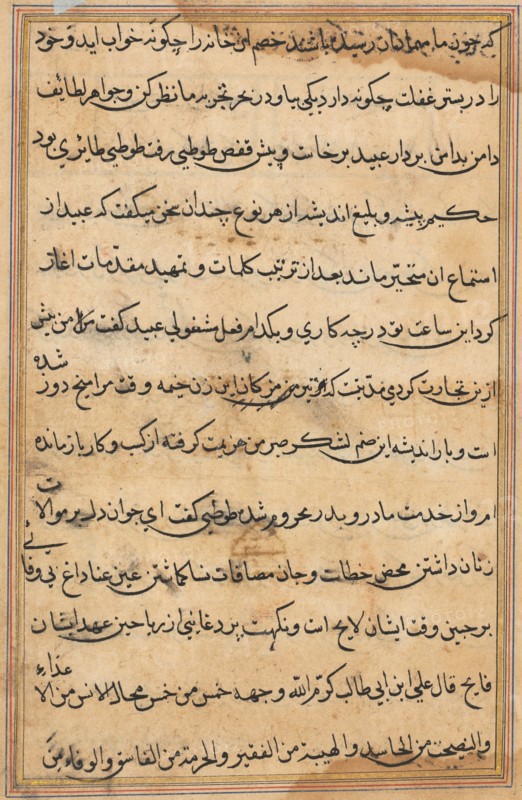 که چون ما مهمانان رسیده باشند خصم این خانه را چگونه خواب اید و خود
را در بستر غفلت چگونه دارد یکی بیا و در بحر تجربه ما نظر کن و جواهر لطائف
دامن بدامن بردار عبید برخاست و پیش قفص طوطی رفت طوطی طائری بود
حکیم پیشه و بلیغ اندیشه از هر نوع چندان سخن میگفت که عبید از
استماع ان متحیّر ماند بعد از ترتیب کلمات و تمهید مقدّمات اغاز
کرد این ساعت تو در چه کاری و بکدام فعل مشغولی عبید کفت مرا من پیش
ازین تجارت کردی مدّتیست که این زن خیمه وقت مرا میخ دوز شده
است و بار اندیشه این صنم لشکر صبر من هزیمت کرفته از کسب و کار باز مانده
ام و از خدمت مادر و پدر محروم شده طوطی کفت ای جوان دل بر موالات
زنان داشتن محض خطاست و جان مصافات نسا کماشتن عین عنا داغ بی وفائی
بر جبین وقت ایشان لایح است و نکهت بر ریاحین عهد ایشان
فایح قال علی ابن ابی طالب کرّم الله وجهه خمس من خمس محال الانس من الاعداء
والنصیحت من الحاسد والهیبة من الفقیر والحرمة من الفاسق والوفاء مِنَ